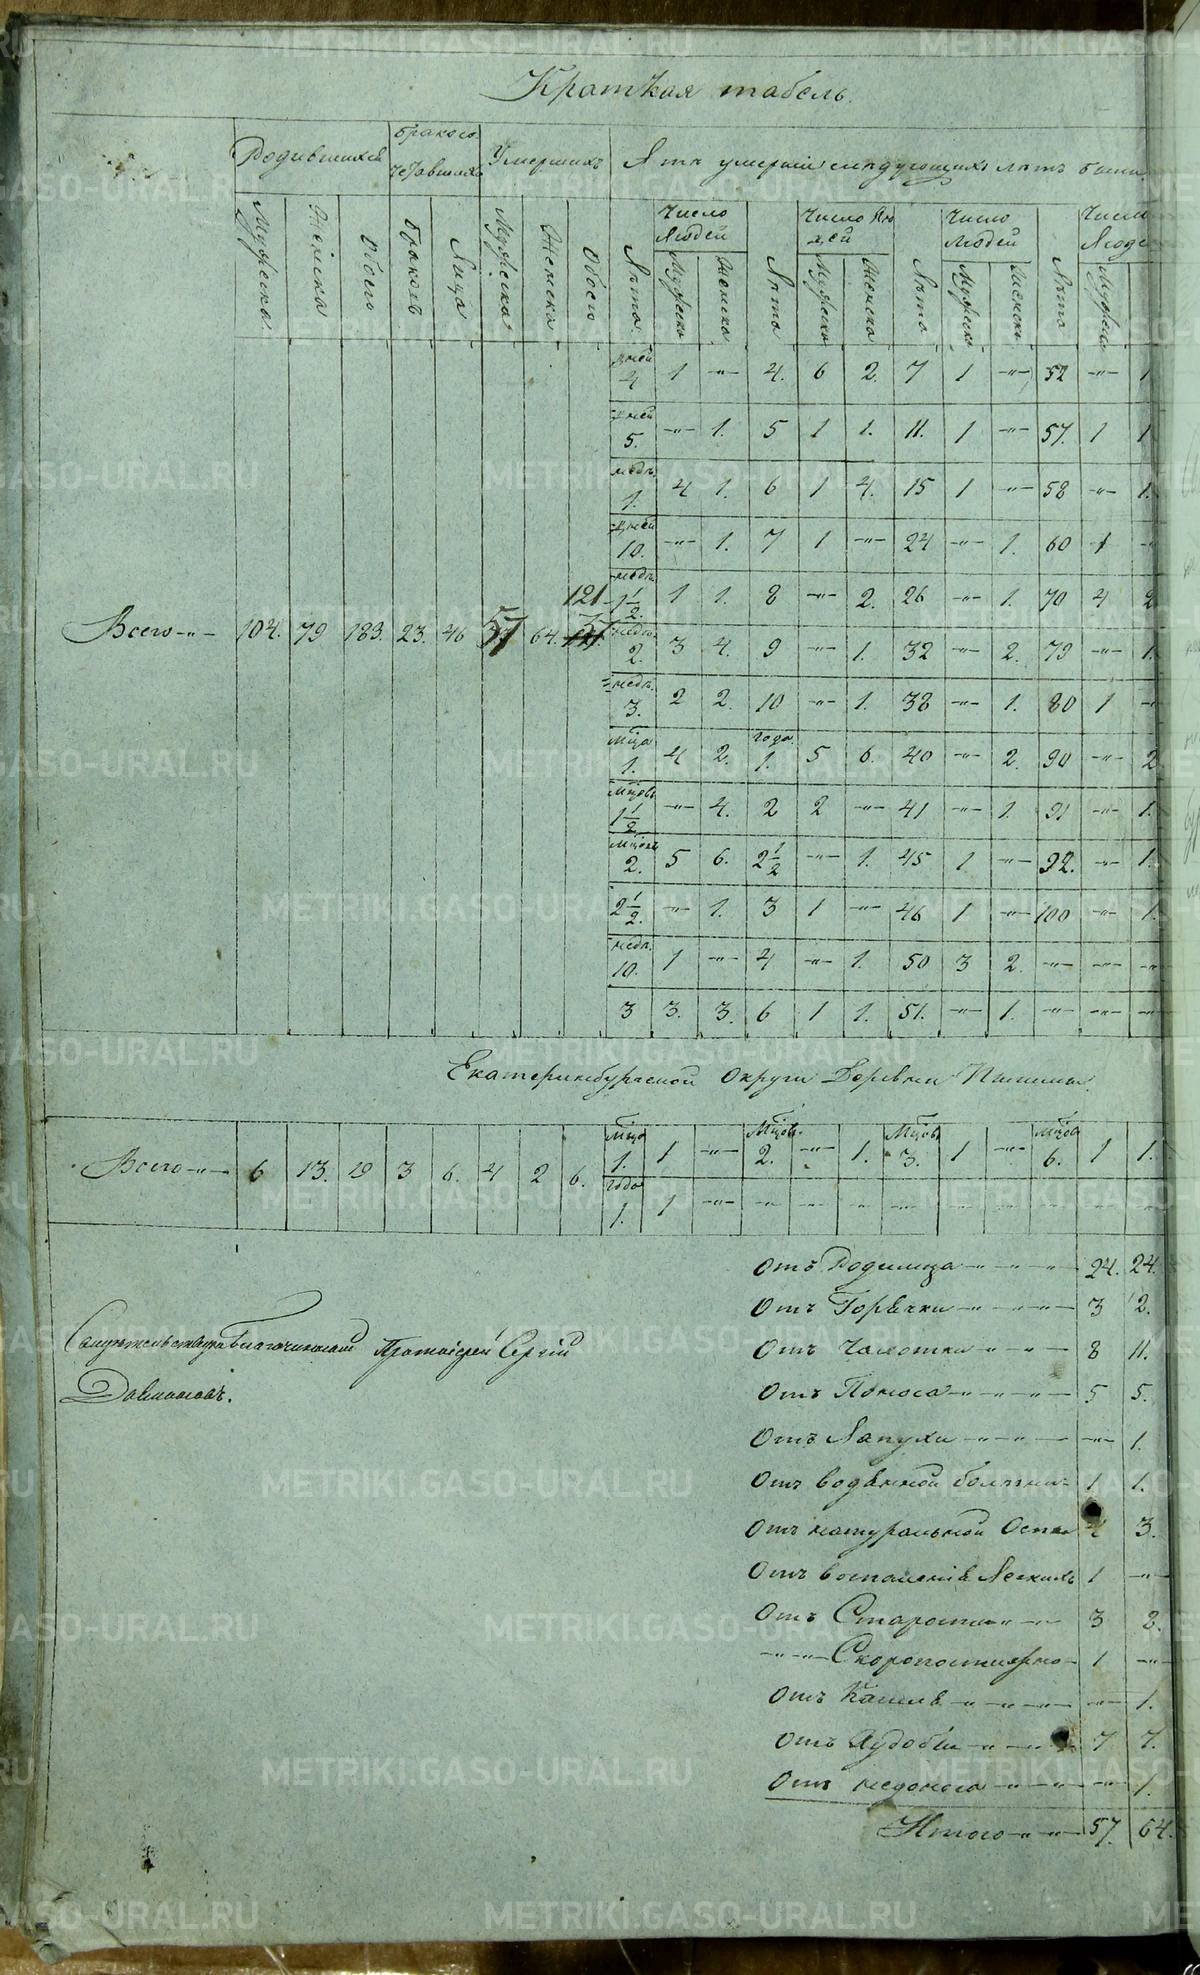 Краткая табель.
Родившихся Бракосочетавшихся Умершихъ А тѣ умершіи слѣдующихъ лѣтъ были
Число Людей Число Людей Число Людей Число Люде
Мужеска Женска Обоего Браковъ Лица Мужеска Женска Обоего Лѣта Мужеска Женска Лѣта Мужеска Женска Лѣта Мужеска Женска Лѣта Мужеска
дней 4 1 -"- 4. 6 2. 7 1 -"- 52 -"- 1
дней 5. -"- 1. 5 1 1. 11. 1 -"- 57. 1 1
недѣ. 1. 4 1. 6 1 4. 15 1 -"- 58 -"- 1.
дней 10. -"- 1. 7 1 -"- 24 -"- 1. 60 1 -"-
недѣ. 1 1/2. 1 1. 8 -"- 2. 26 -"- 1. 70 4 2
Всего -"- 104. 79 183. 23. 46 57 64. 121
недѣ. 2. 3 4. 9 -"- 1. 32 -"- 2. 79 -"- 1.
недѣ. 3. 2 2. 10 -"- 1. 38 -"- 1. 80 1 -"-
мца 1. 4 2. года 1. 5 6. 40 -"- 2. 90 -"- 2
мцовъ 1 1/2 -"- 4. 2 2 -"- 41 -"- 1. 91 -"- 1.
мцовъ 2. 5 6. 2 1/2 -"- 1. 45 1 -"- 92. -"- 1.
2 1/2. -"- 1. 3 1 -"- 46 1 -"- 100 -"- 1.
недѣ. 10. 1 -"- 4 -"- 1. 50 3 2. -"- -"- -"-
3 3. 3. 6 1 1. 51. -"- 1. -"- -"- -"-
Екатеринбургской Округи Деревни Пышмы.
Всего -"- 6 13. 19 3 6. 4 2 6. мца 1. 1 -"- Мцовъ 2. -"- 1. Мцовъ 3. 1 -"- мцовъ 6. 1 1.
года 1. 1 -"- -"- -"- -"- -"- -"- -"- -"- -"- -"-
Отъ Родимца -"- 24. 24.
Отъ Горячки -"- 3 2.
Отъ Чахотки -"- 8 11.
Отъ Поноса -"- 5 5.
Отъ Лапухи -"- -"- 1.
Отъ водяной болѣзни 1 1.
Отъ натуральной Оспы 4 3.
Отъ воспаленія Легкихъ 1 -"-
Отъ Старости -"- 3 8.
-"- Скоропостижно 1 -"-
Отъ Кашля -"- -"- 1.
Отъ Худобы -"- 7 7.
Отъ недоноса -"- -"- 1.
Итого -"- 57. 64.
Благочинный Протоіерей Сергій
METRIKI.GASO-URAL.RU